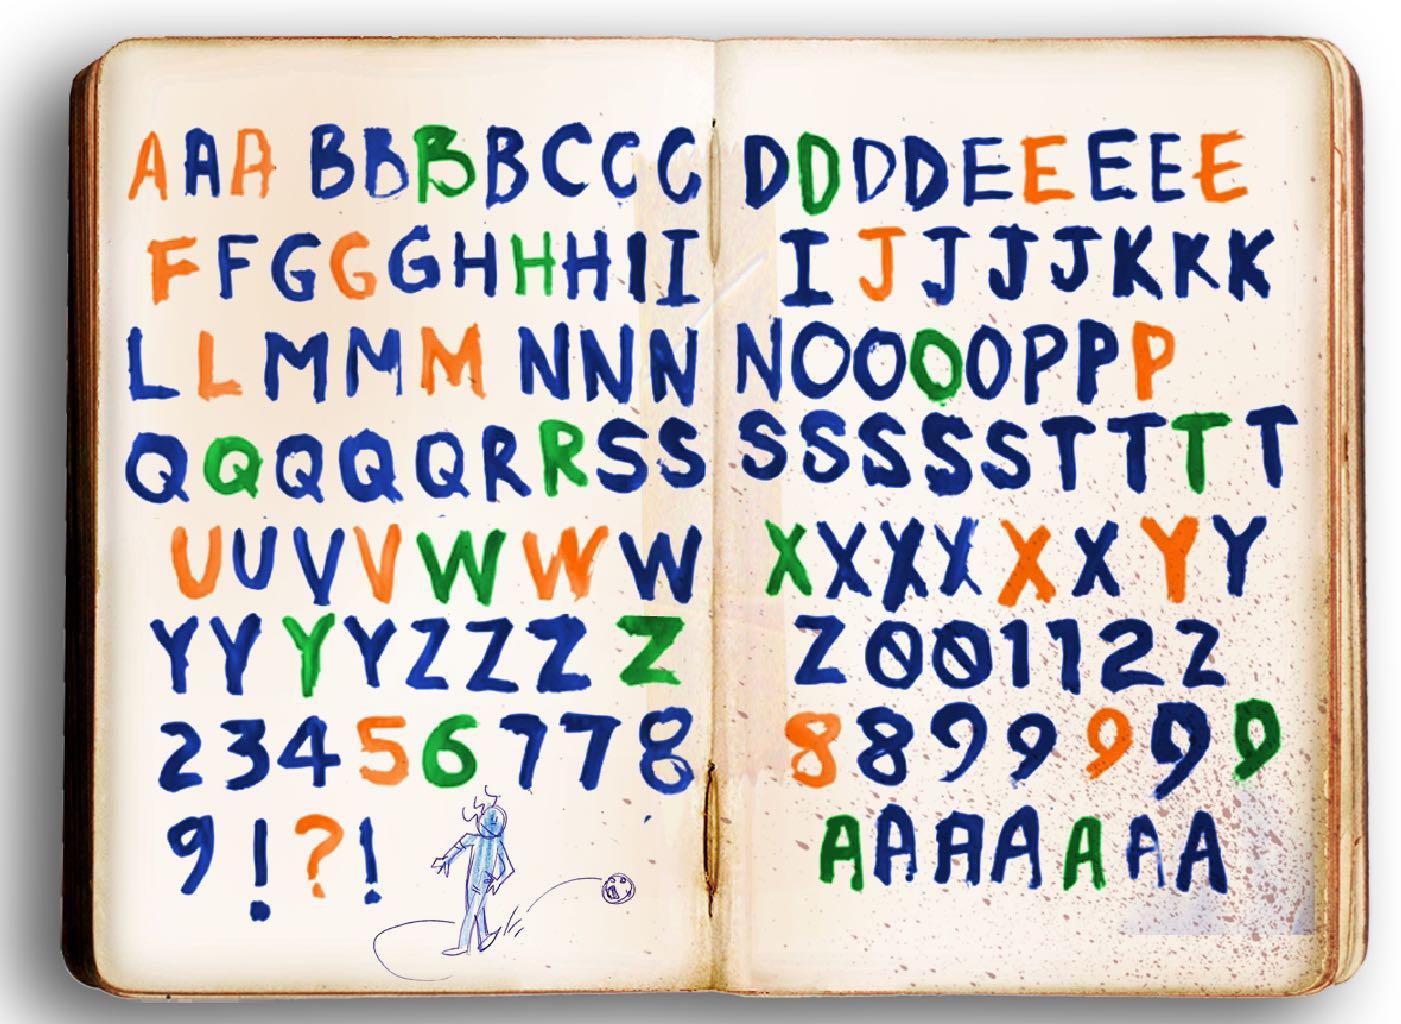 AAA BBBBCCC DDDDEEEEE
FFGGGHHHII IJJJJKKK
LLMMM NNN NOOOOPPP
QQQQQRRSS SSSSSTTTT
UUVVWWW XXXXXXYY
YYYYZZZZ Z001122
23456778 8899999
9!?! AAAAAAA